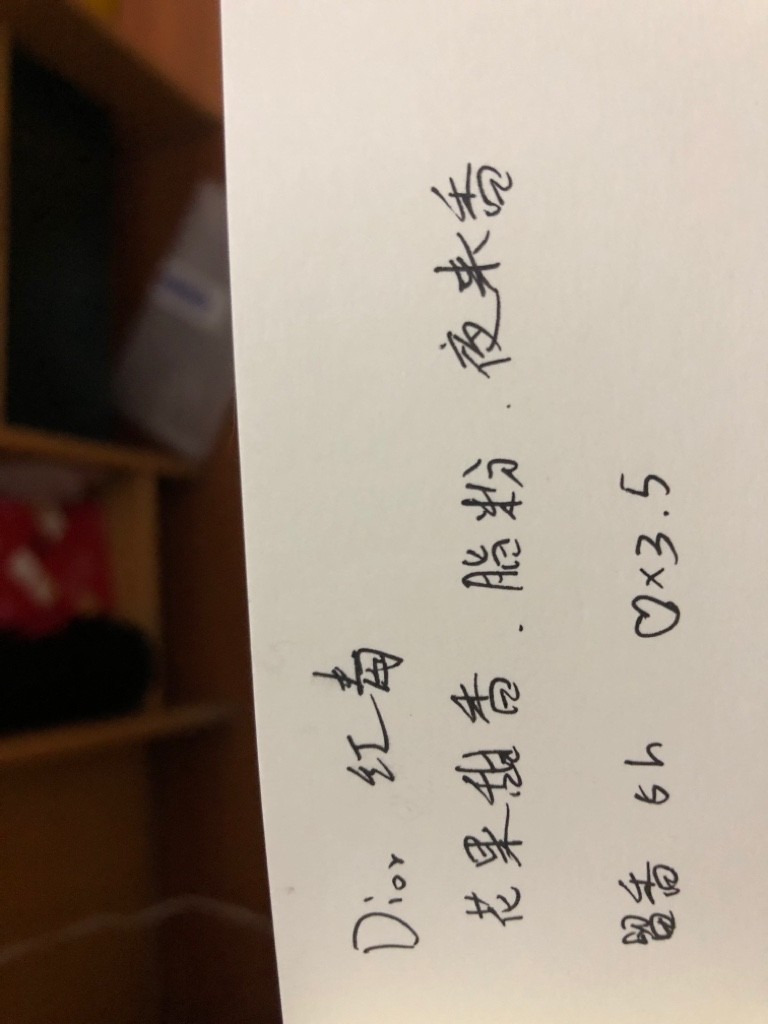 Dior 红毒
花果甜香．脂粉．夜来香
留香 6h ♡×3.5